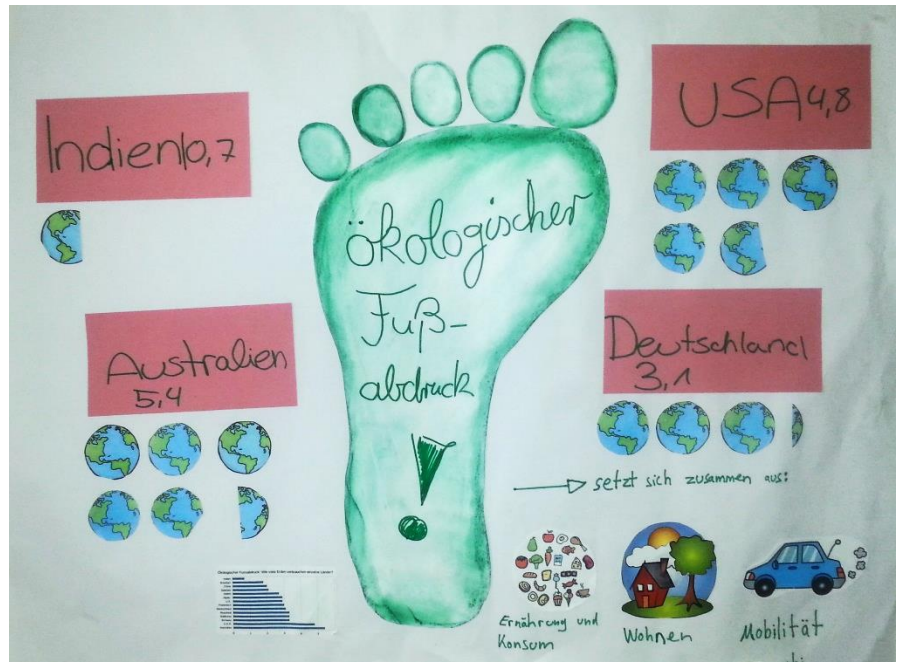 Indien 0,7
USA 4,8
ökologischer
Fuß-
abdruck
!
Australien
5,4
Deutschland
3,1
setzt sich zusammen aus:
Ernährung und
Konsum
Wohnen
Mobilität